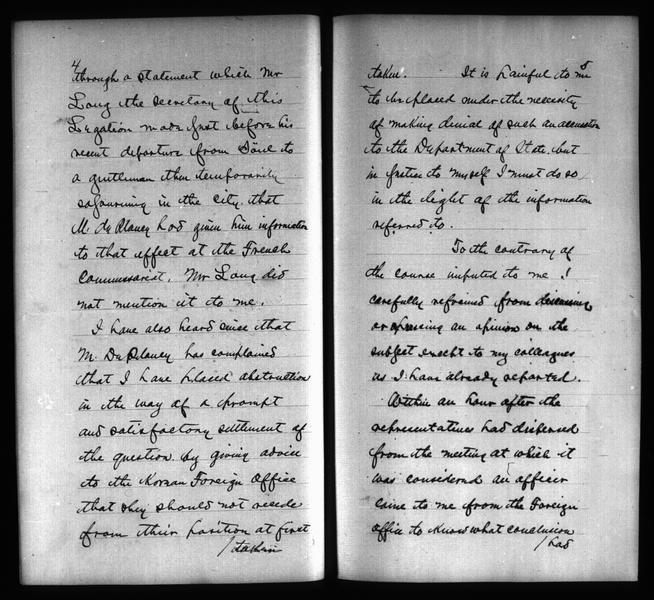 4
through a statement which Mr
Long the secretary of this
Legation made just before his
recent departure from Söul to
a gentleman then temporarily
sojourning in the city that
M. de Plancy had given him information
to that effect at the French
Commissariat. Mr Long did
not mention it to me.
I have also heard since that
M. De Plancy has complained
that I have placed obstruction
in the way of a prompt
and satisfactory settlement of
the question by giving advice
to the Korean Foreign Office
that they should not recede
from their position at first
/taken
5
taken. It is painful to me
to be placed under the necessity
of making denial of such an accusation
to the Department of State but
in justice to myself I must do so
in the light of the information
referred to.
To the contrary of
the course imputed to me I
carefully refrained from discussing
or expressing an opinion on the
subject except to my colleagues
as I have already reported.
Within an hour after the
representatives had dispersed
from the meeting at which it
was considered an officer
came to me from the Foreign
office to know what conclusion
/had